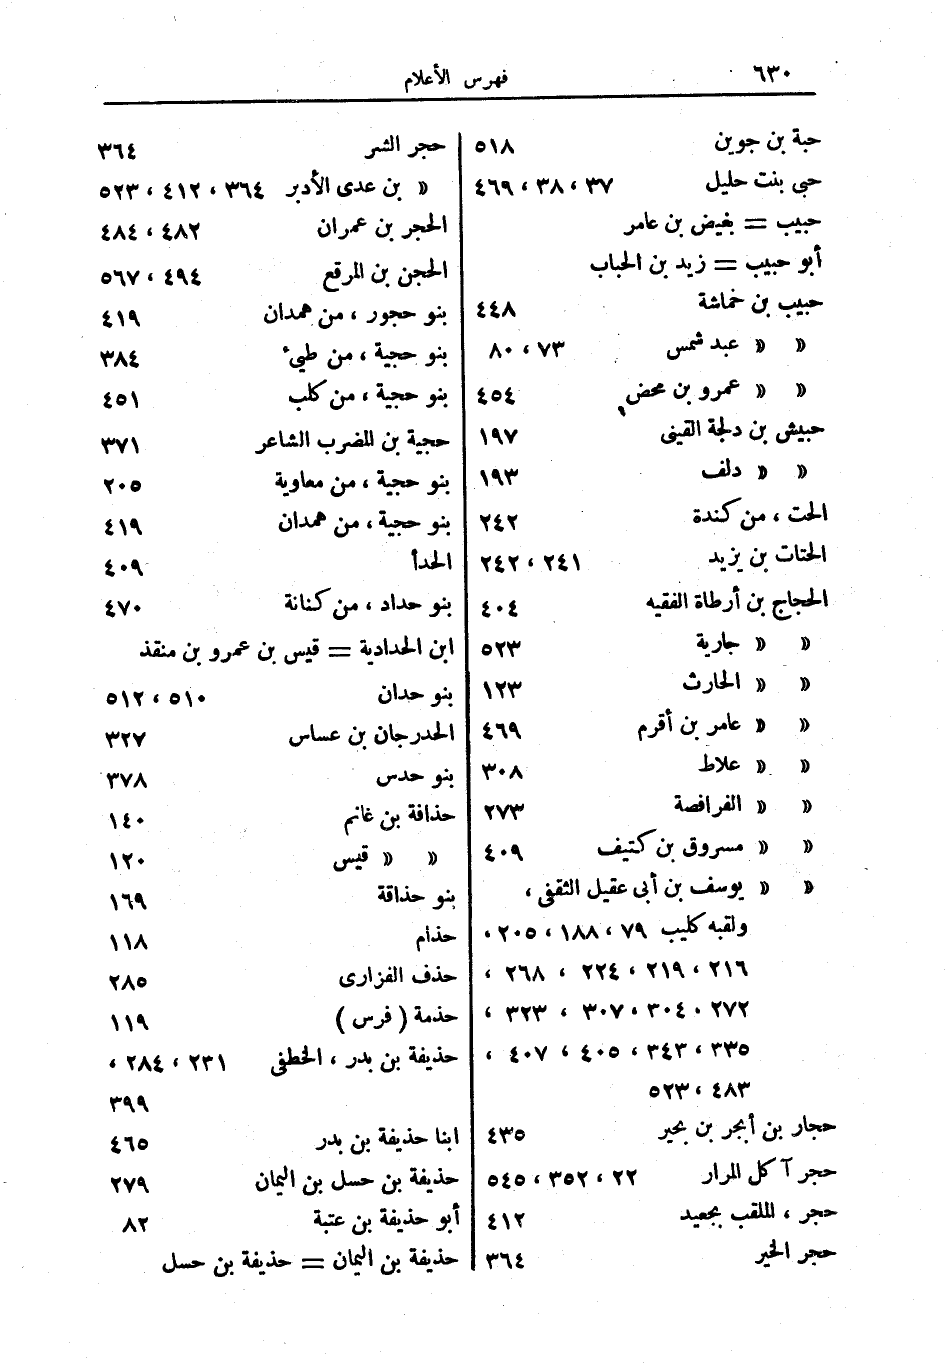 ٦٣٠ فهرس الأعلام
حبة بن جوين ٥١٨
حبى بنت حليل ٣٧ ، ٣٨ ، ٤٦٩
حبيب = بغيض بن عامر
أبو حبيب = زيد بن الحباب
حبيب بن خماشة ٤٤٨
» » عبد شمس ٧٣ ، ٨٠
» » عمرو بن محض ٤٥٤
حبيش بن دلجة القينى ١٩٧
» » دلف ١٩٣
الحت ، من كندة ٢٤٢
الحتات بن يزيد ٢٤١ ، ٢٤٢
الحجاج بن أرطاة الفقيه ٤٠٤
» » جارية ٥٢٣
» » الحارث ١٢٣
» » عامر بن أقرم ٤٦٩
» » علاط ٣٠٨
» » الفرافصة ٢٧٣
» » مسروق بن كتيف ٤٠٩
» » يوسف بن أبى عقيل الثقفى ،
ولقبه كليب ٧٩ ، ١٨٨ ، ٢٠٥ ،
٢١٦ ، ٢١٩ ، ٢٢٤ ، ٢٦٨ ،
٢٧٢ ، ٣٠٤ ، ٣٠٧ ، ٣٢٣ ،
٣٣٥ ، ٣٤٣ ، ٤٠٥ ، ٤٠٧ ،
٤٨٣ ، ٥٢٣
حجار بن أبجر بن بحير ٤٣٥
حجر آ كل المرار ٢٢ ، ٣٥٢ ، ٥٤٥
حجر ، الملقب بجعيد ٤١٢
حجر الخير ٣٦٤
حجر الشر ٣٦٤
» بن عدى الأدبر ٣٦٤ ، ٤١٢ ، ٥٢٣
الحجر بن عمران ٤٨٢ ، ٤٨٤
الحجن بن المرقع ٤٩٤ ، ٥٦٧
بنو حجور ، من همدان ٤١٩
بنو حجية ، من طيء ٣٨٤
بنو حجية ، من كلب ٤٥١
حجية بن المضرب الشاعر ٣٧١
بنو حجية ، من معاوية ٢٠٥
بنو حجية ، من همدان ٤١٩
الحدأ ٤٠٩
بنو حداد ، من كنانة ٤٧٠
ابن الحدادية = قيس بن عمرو بن منقذ
بنو حدان ٥١٠ ، ٥١٢
الحدرجان بن عساس ٣٢٧
بنو حدس ٣٧٨
حذافة بن غانم ١٤٠
» » قيس ١٢٠
بنو حذاقة ١٦٩
حذام ١١٨
حذف الفزارى ٢٨٥
حذمة ( فرس ) ١١٩
حذيفة بن بدر ، الخطفى ٢٣١ ، ٢٨٤ ،
٣٩٩
ابنا حذيفة بن بدر ٤٦٥
حذيفة بن حسل بن اليمان ٢٧٩
أبو حذيفة بن عتبة ٨٢
حذيفة بن اليمان = حذيفة بن حسل